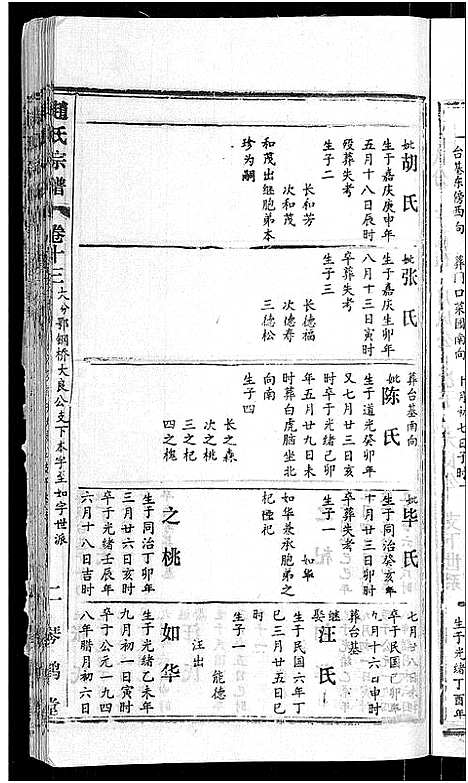 赵氏宗谱
卷十三
大分鄂钢桥大良公支下本字至如字世派
二
琴鹤堂
妣胡氏
生于嘉庆庚申年
五月十八日辰时
殁葬失考
生子二
长和芳
次和茂
和茂出继胞弟本
珍为嗣
妣张氏
生于嘉庆
八月十三日寅时
卒葬失考
生子三
长德福
次德寿
三德松
葬台基南向
妣陈氏
生于道光癸卯年
又七月廿三日亥
时卒于光绪己卯
年五月廿九日未
时葬白虎脑坐北
向南
生子四
长之森
次之桃
三之杞
四之槐
妣毕氏
生于同治癸亥年
十月廿三日卯时
卒葬失考
生子一
如华
如华兼承胞弟之
杞桠祀
之桃
生于同治丁卯年
三月廿六日亥时
卒于光绪壬辰年
六月十八日吉时
七月廿八日丑时
卒于民国己卯年
九月十六日申时
葬台基
继娶汪氏
生于民国六年丁
巳三月廿五日巳
时
生子一
能德
汪出
如华
生于光绪乙未年
九月初一日寅时
卒于公元一九四
八年腊月初六日
台基东傍西向
葬门口菜园南向
十月初七日子时
生于光绪丁酉年